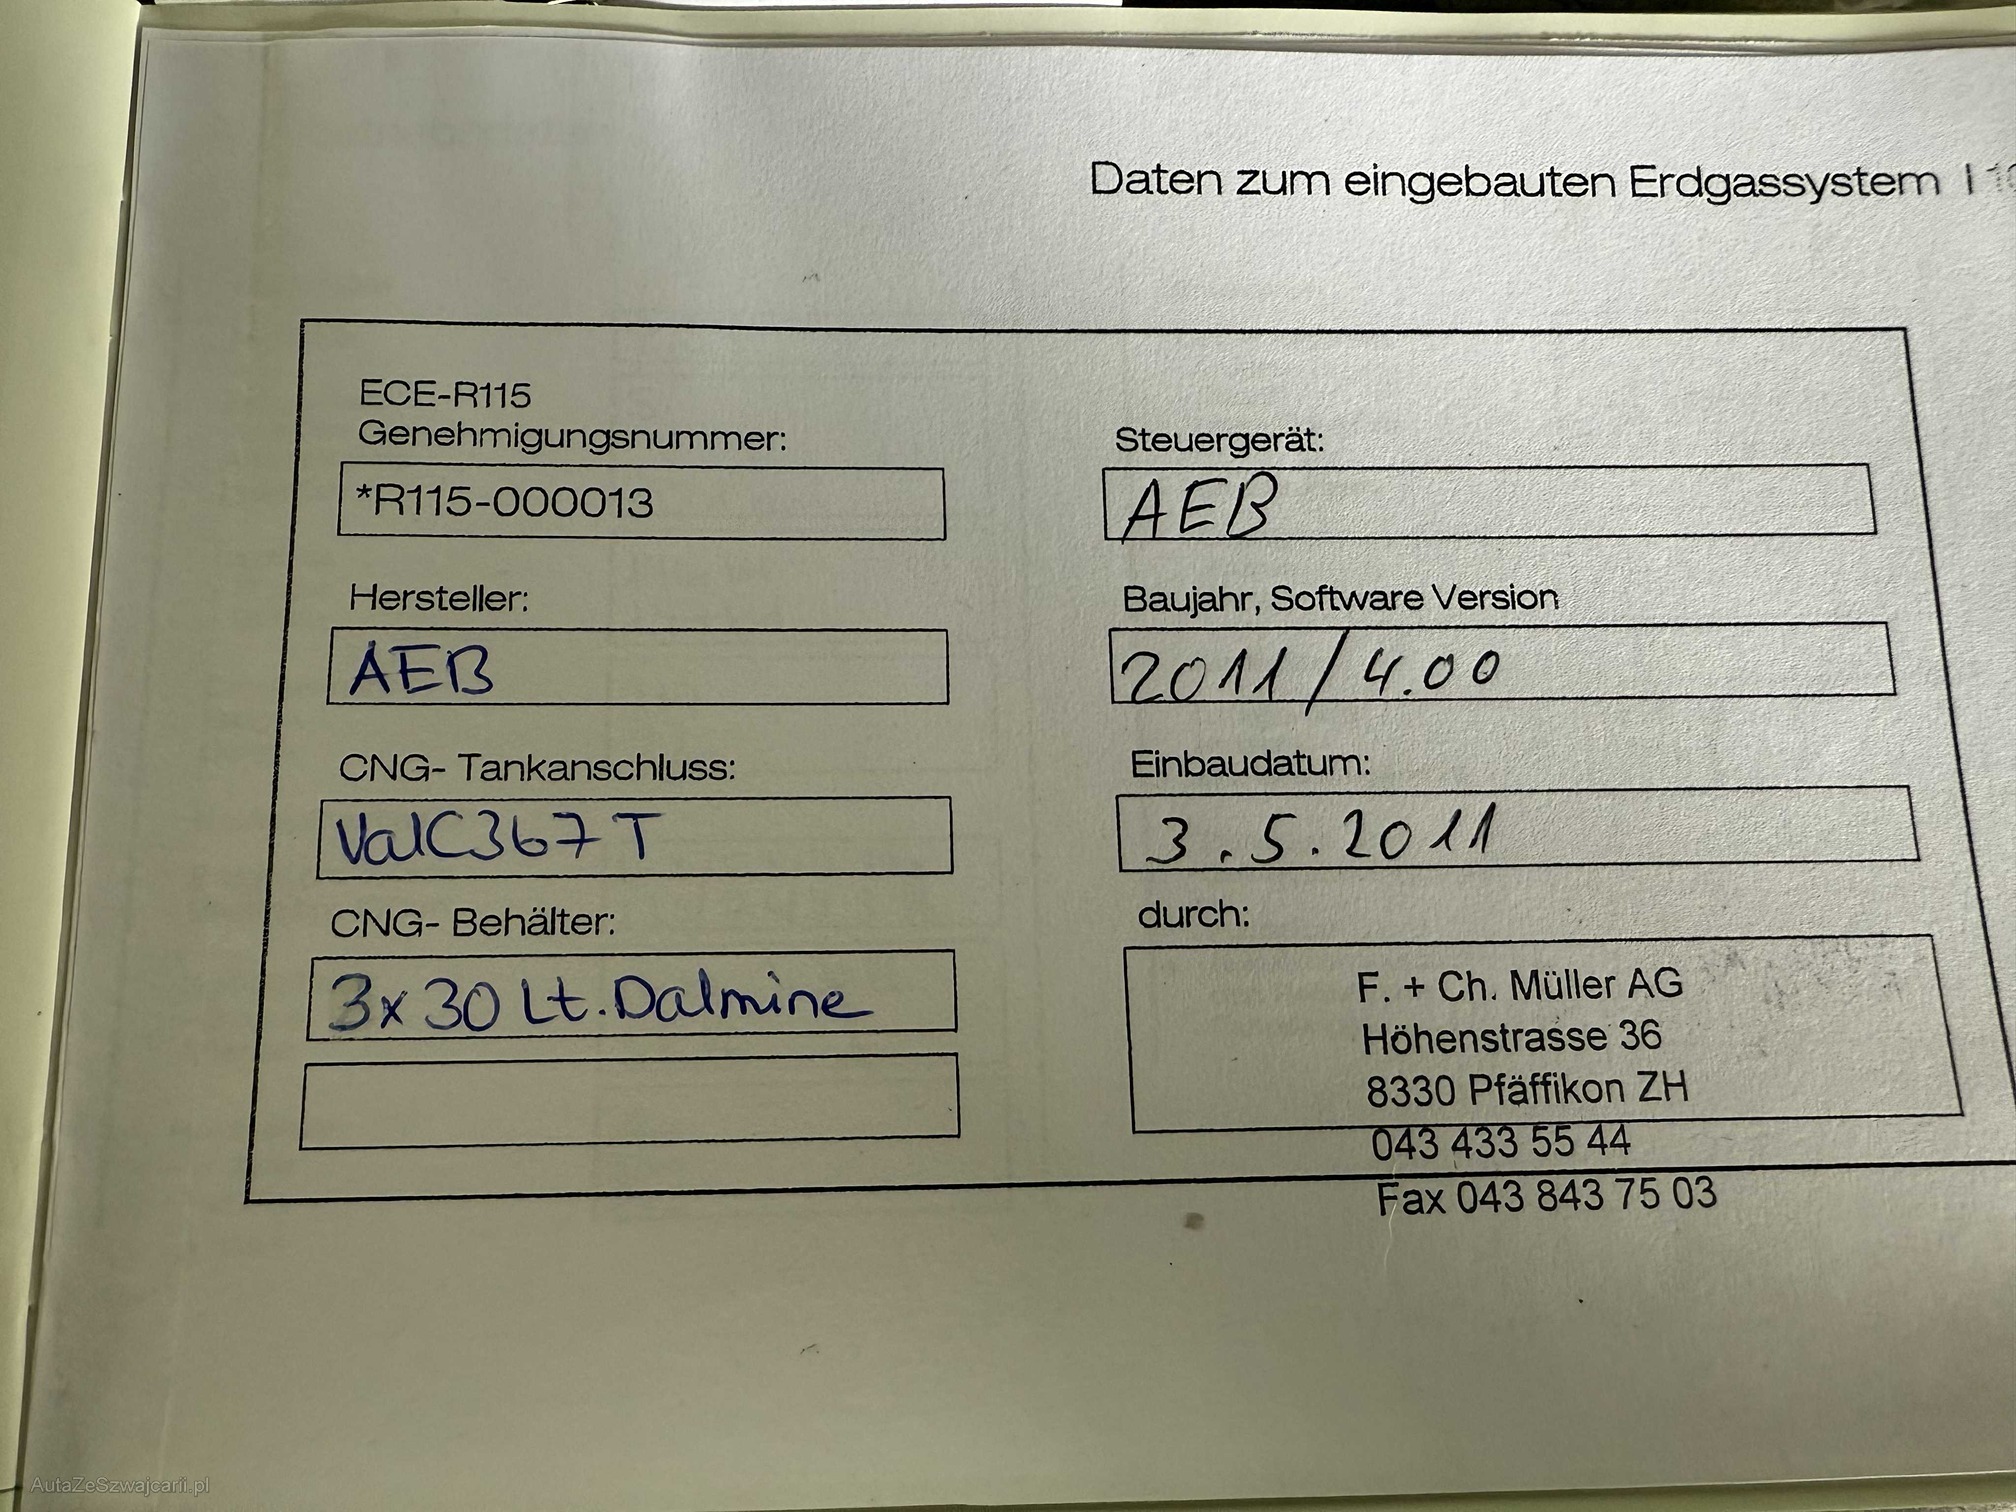 Daten zum eingebauten Erdgassystem |
ECE-R115
Genehmigungsnummer:
*R115-000013
Hersteller:
AEB
CNG- Tankanschluss:
ValC367T
CNG- Behälter:
3x30 Lt. Dalmine
Steuergerät:
AEB
Baujahr, Software Version
2011/4.00
Einbaudatum:
3.5.2011
durch:
F. + Ch. Müller AG
Höhenstrasse 36
8330 Pfäffikon ZH
043 433 55 44
Fax 043 843 75 03
AutaZeSzwajcarii.pl